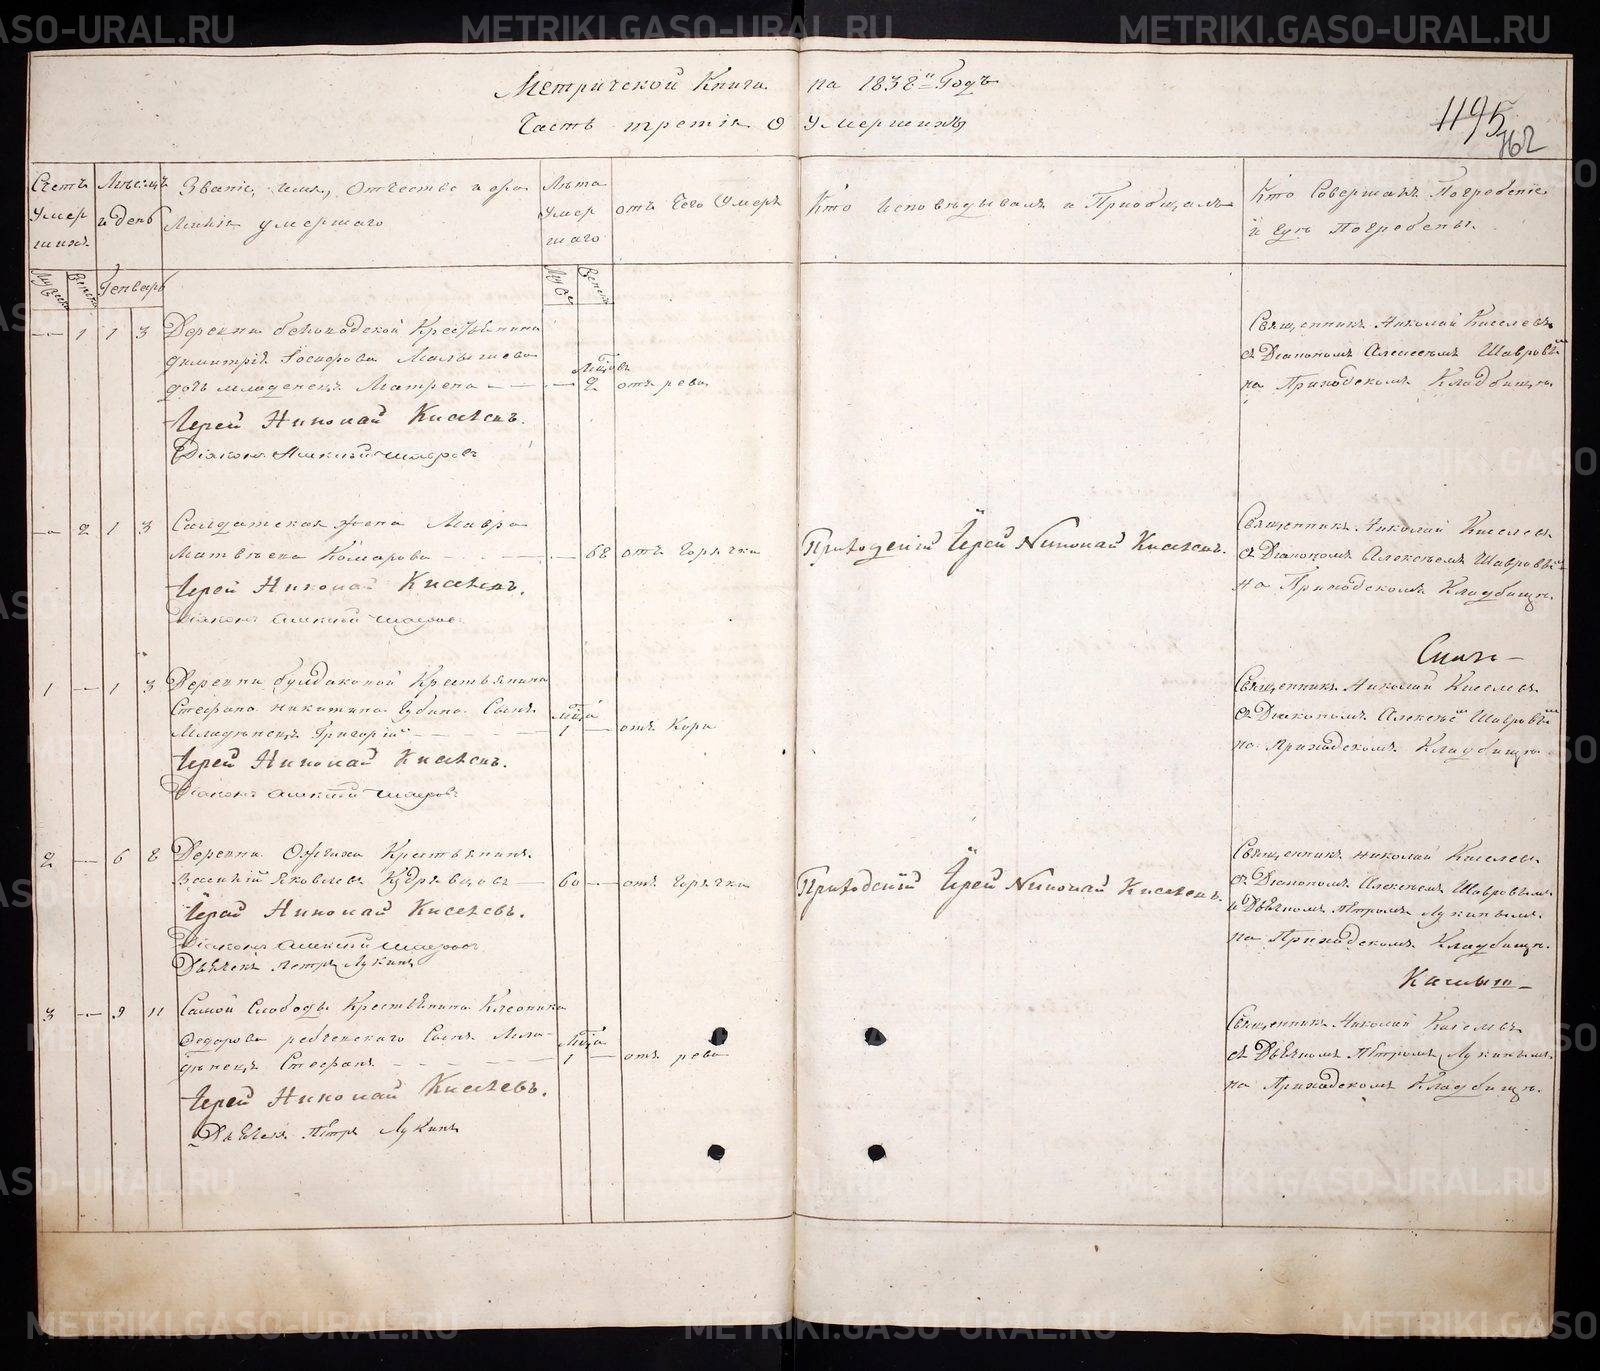 Метрической Книги на 1838й Годъ
Часть третія О Умершихъ
1195
762
Счетъ Умершихъ
Мѣсяцъ и день
Званіе, имя, Отчество и фамилія умершаго
Лѣта Умершаго
отъ Чего Умеръ
Кто Исповѣдывалъ и Пріобщалъ
Кто Совершалъ Погребеніе и Гдѣ Погребены.
Муска
Женска
Генварь
Муска
Женска
— 1 1 3 Деревни Крестьянина
Димитрія Іосифова Малышева
дочь младенецъ Матрена — — — 2 отъ рева
Іерей Николай Киселевъ.
Діаконъ Алексѣй Шавровъ
Священникъ Николай Киселевъ
съ Діакономъ Алексеемъ Шавровымъ
на Приходскомъ Кладбищѣ
— 2 1 3 Салдатская жена Мавра
Матвѣева Комарова — 68 отъ Горячки
Іерей Николай Киселевъ.
Діаконъ Алексѣй Шавровъ
Приходскій Іерей Николай Киселевъ.
Священникъ Николай Киселевъ
съ Діакономъ Алексѣемъ Шавровымъ
на Приходскомъ Кладбищѣ.
1 — 1 3 Деревни Булдаковой Крестьянина
Стефана Никитина Губина Сынъ
Младенецъ Григорій — 1 — отъ Кори
Іерей Николай Киселевъ.
Діаконъ Алексѣй Шавровъ
Священникъ Николай Киселевъ
съ Діакономъ Алексѣемъ Шавровымъ
на Приходскомъ Кладбищѣ
2 — 6 8 Деревни Ожгиха Крестьянинъ
Василій Яковлевъ Кудрявцовъ — 60 — отъ Горячки
Іерей Николай Киселевъ.
Діаконъ Алексѣй Шавровъ
Дьячекъ Петръ Лукинъ
Приходскій Іерей Николай Киселевъ.
Священникъ Николай Киселевъ
съ Діакономъ Алексѣемъ Шавровымъ
и Дьячкомъ Петромъ Лукинымъ
на Приходскомъ Кладбищѣ.
3 — 9 11 Самой Слободы Крестьянина
Федорова Сынъ Младенецъ Стефанъ — 1 — отъ рева
Іерей Николай Киселевъ.
Дьячекъ Петръ Лукинъ
Священникъ Николай Киселевъ
съ Дьячкомъ Петромъ Лукинымъ
на Приходскомъ Кладбищѣ.
METRIKI.GASO-URAL.RU